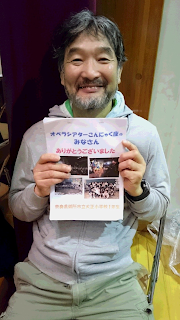 オペラシアターこんにゃく座の
みなさん
ありがとうございました